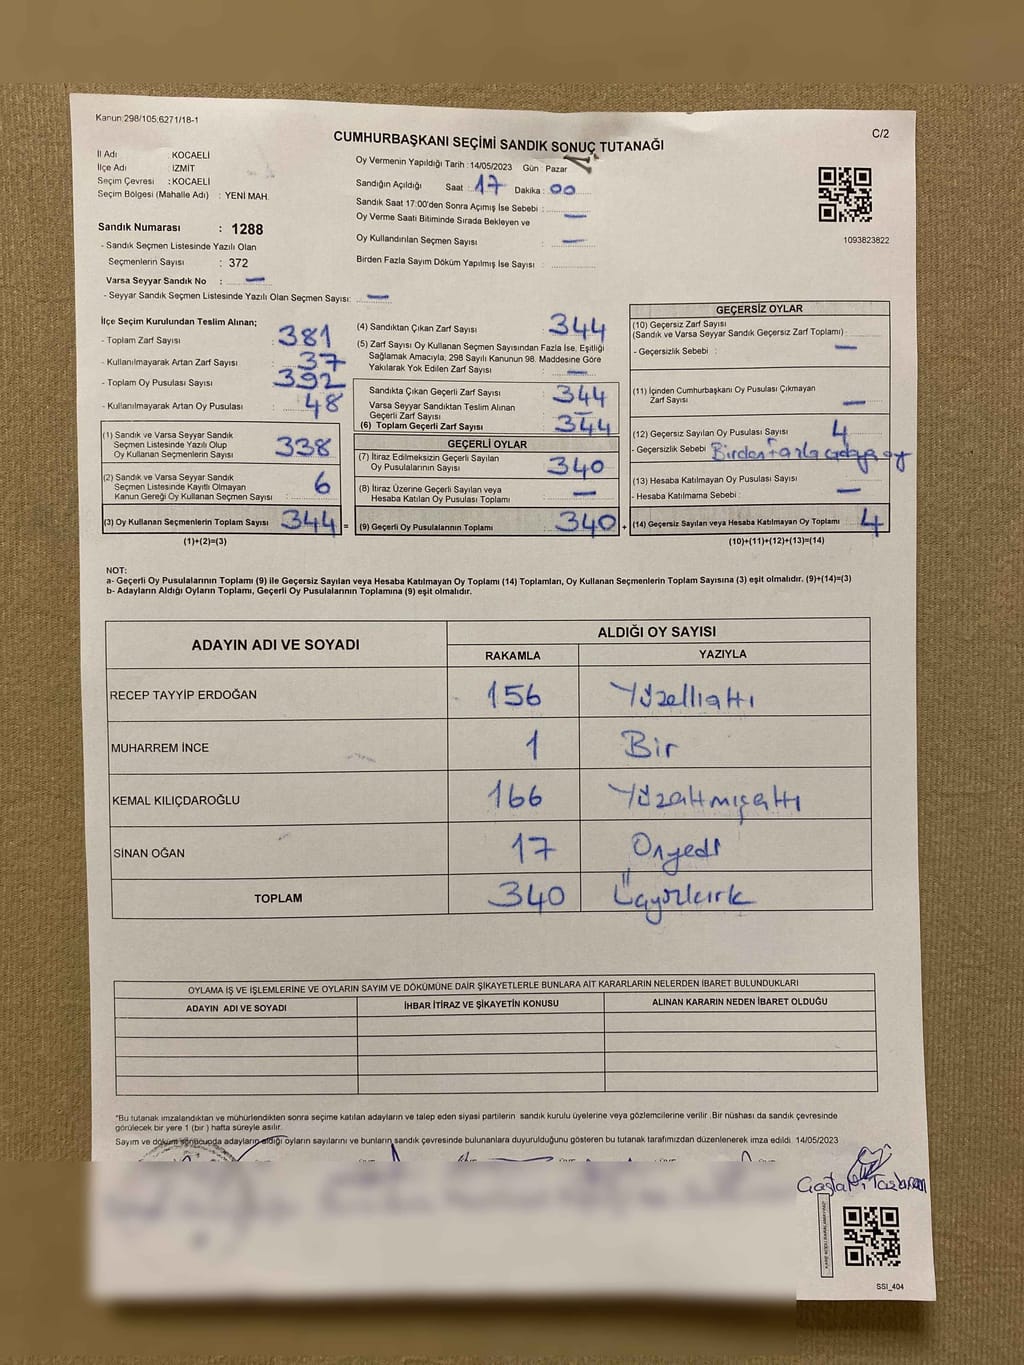 Kanun:298/105;6271/18-1
C/2
CUMHURBAŞKANI SEÇİMİ SANDIK SONUÇ TUTANAĞI
İl Adı : KOCAELİ
İlçe Adı : İZMİT
Seçim Çevresi : KOCAELİ
Seçim Bölgesi (Mahalle Adı) : YENİ MAH.
Sandık Numarası : 1288
- Sandık Seçmen Listesinde Yazılı Olan
Seçmenlerin Sayısı : 372
Varsa Seyyar Sandık No : —
- Seyyar Sandık Seçmen Listesinde Yazılı Olan Seçmen Sayısı: —
Oy Vermenin Yapıldığı Tarih : 14/05/2023 Gün : Pazar
Sandığın Açıldığı Saat : 17 Dakika : 00
Sandık Saat 17:00'den Sonra Açımış İse Sebebi :
Oy Verme Saati Bitiminde Sırada Bekleyen ve —
Oy Kullandırılan Seçmen Sayısı : —
Birden Fazla Sayım Döküm Yapılmış İse Sayısı :
1093823822
İlçe Seçim Kurulundan Teslim Alınan;
- Toplam Zarf Sayısı : 381
- Kullanılmayarak Artan Zarf Sayısı : 37
- Toplam Oy Pusulası Sayısı : 392
- Kullanılmayarak Artan Oy Pusulası : 48
(1) Sandık ve Varsa Seyyar Sandık
Seçmen Listesinde Yazılı Olup
Oy Kullanan Seçmenlerin Sayısı : 338
(2) Sandık ve Varsa Seyyar Sandık
Seçmen Listesinde Kayıtlı Olmayan
Kanun Gereği Oy Kullanan Seçmen Sayısı : 6
(3) Oy Kullanan Seçmenlerin Toplam Sayısı : 344 =
(1)+(2)=(3)
(4) Sandıktan Çıkan Zarf Sayısı : 344
(5) Zarf Sayısı Oy Kullanan Seçmen Sayısından Fazla İse, Eşitliği
Sağlamak Amacıyla; 298 Sayılı Kanunun 98. Maddesine Göre
Yakılarak Yok Edilen Zarf Sayısı : —
Sandıkta Çıkan Geçerli Zarf Sayısı : 344
Varsa Seyyar Sandıktan Teslim Alınan
Geçerli Zarf Sayısı : —
(6) Toplam Geçerli Zarf Sayısı : 344
GEÇERLİ OYLAR
(7) İtiraz Edilmeksizin Geçerli Sayılan
Oy Pusulalarının Sayısı : 340
(8) İtiraz Üzerine Geçerli Sayılan veya
Hesaba Katılan Oy Pusulası Toplamı : —
(9) Geçerli Oy Pusulalarının Toplamı : 340 +
GEÇERSİZ OYLAR
(10) Geçersiz Zarf Sayısı
(Sandık ve Varsa Seyyar Sandık Geçersiz Zarf Toplamı) :
- Geçersizlik Sebebi : —
(11) İçinden Cumhurbaşkanı Oy Pusulası Çıkmayan
Zarf Sayısı : —
(12) Geçersiz Sayılan Oy Pusulası Sayısı : 4
- Geçersizlik Sebebi : Birden fazla adaya oy
(13) Hesaba Katılmayan Oy Pusulası Sayısı :
- Hesaba Katılmama Sebebi : —
(14) Geçersiz Sayılan veya Hesaba Katılmayan Oy Toplamı : 4
(10)+(11)+(12)+(13)=(14)
NOT:
a- Geçerli Oy Pusulalarının Toplamı (9) ile Geçersiz Sayılan veya Hesaba Katılmayan Oy Toplamı (14) Toplamları, Oy Kullanan Seçmenlerin Toplam Sayısına (3) eşit olmalıdır. (9)+(14)=(3)
b- Adayların Aldığı Oyların Toplamı, Geçerli Oy Pusulalarının Toplamına (9) eşit olmalıdır.
ADAYIN ADI VE SOYADI ALDIĞI OY SAYISI
RAKAMLA YAZIYLA
RECEP TAYYİP ERDOĞAN 156 Yüzelliatı
MUHARREM İNCE 1 Bir
KEMAL KILIÇDAROĞLU 166 Yüzaltmışaltı
SİNAN OĞAN 17 Onyedi
TOPLAM 340 Üçyüzkırk
OYLAMA İŞ VE İŞLEMLERİNE VE OYLARIN SAYIM VE DÖKÜMÜNE DAİR ŞİKAYETLERLE BUNLARA AİT KARARLARIN NELERDEN İBARET BULUNDUKLARI
ADAYIN ADI VE SOYADI İHBAR İTİRAZ VE ŞİKAYETİN KONUSU ALINAN KARARIN NEDEN İBARET OLDUĞU
*Bu tutanak imzalandıktan ve mühürlendikten sonra seçime katılan adayların ve talep eden siyasi partilerin sandık kurulu üyelerine veya gözlemcilerine verilir .Bir nüshası da sandık çevresinde
görülecek bir yere 1 (bir ) hafta süreyle asılır.
Sayım ve döküm sonucunda adayların aldığı oyların sayılarını ve bunların sandık çevresinde bulunanlara duyurulduğunu gösteren bu tutanak tarafımızdan düzenlenerek imza edildi. 14/05/2023
SSI_404